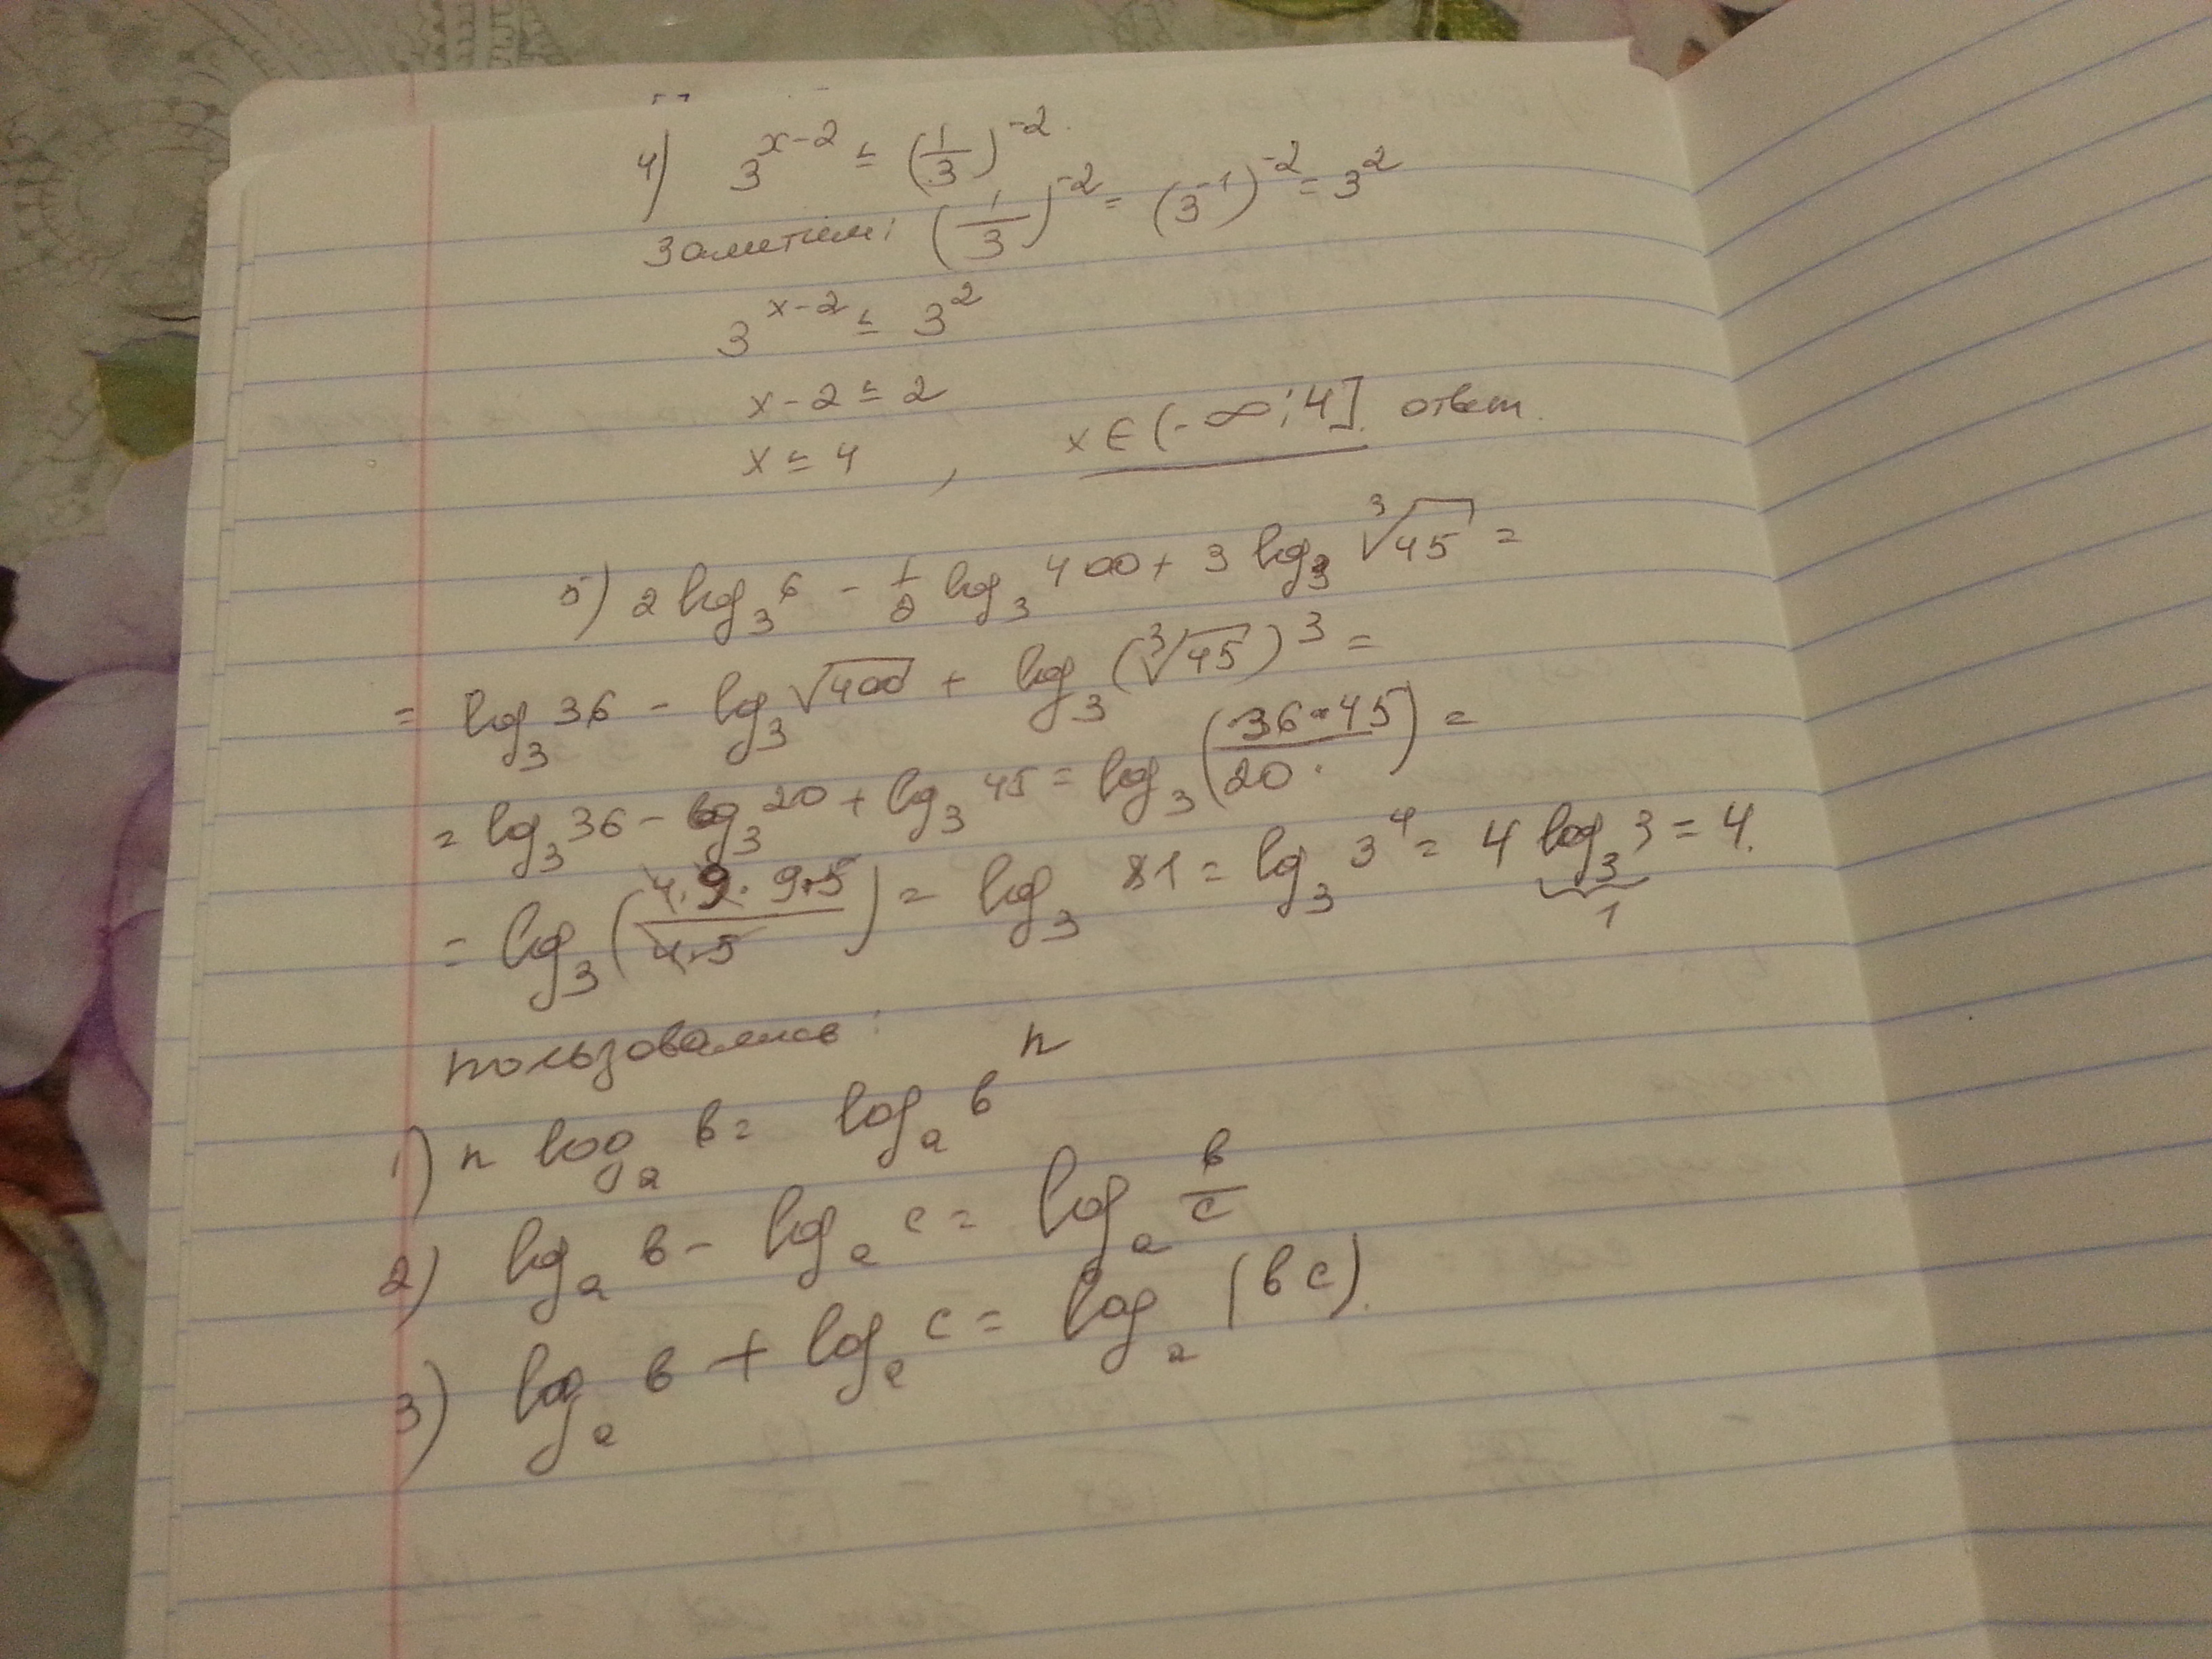 4) 3^(x-2) ≤ (1/3)^(-2).
Заметим: (1/3)^(-2) = (3^(-1))^(-2) = 3^2
3^(x-2) ≤ 3^2
x-2 ≤ 2
x ≤ 4 , x∈(-∞;4] ответ.
5) 2 log_3 6 - 1/2 log_3 400 + 3 log_3 ∛45 =
= log_3 36 - log_3 √400 + log_3 (∛45)^3 =
= log_3 36 - log_3 20 + log_3 45 = log_3 (36·45/20) =
= log_3 (4·9·9·5/4·5) = log_3 81 = log_3 3^4 = 4 log_3 3 = 4.
1
пользовались:
1) n log_a в = log_a в^n
2) log_a в - log_a c = log_a в/c
3) log_a в + log_a c = log_a (вc).